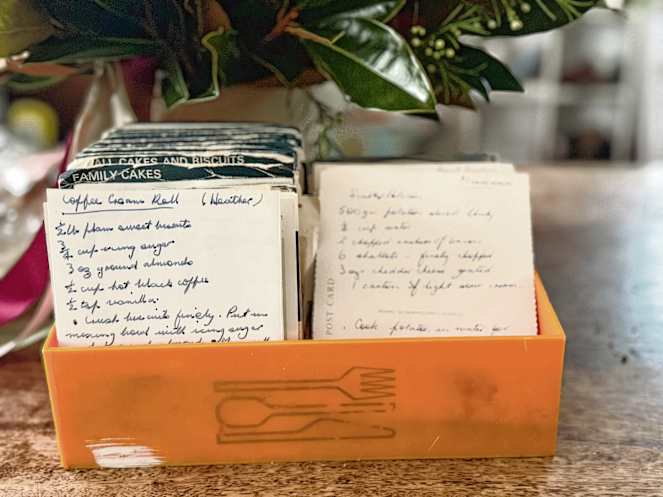 ALL CAKES AND BISCUITS
FAMILY CAKES
Coffee Cream Roll (Heather)
½ lb plain sweet biscuits
¾ cup icing sugar
3 oz ground almonds
¼ cup hot black coffee
½ tsp vanilla
• Crush biscuits finely. Put in
mixing bowl with icing sugar
500gm potatoes
½ cup water
2 chopped
6 shallots - finely chopped
3 oz cheddar cheese grated
1 carton of light sour cream
POST CARD
. Cook potatoes in water for